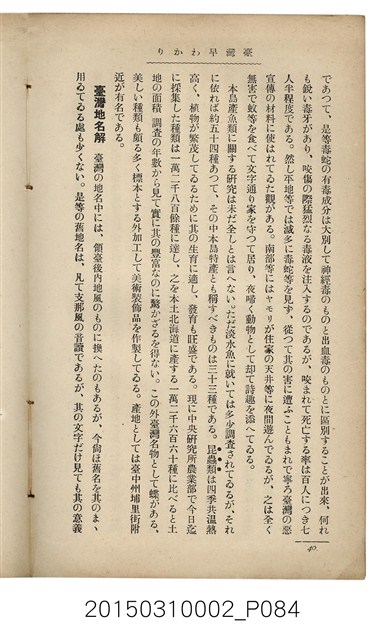 臺灣早わかり
であつて、是等毒蛇の有毒成分は大別して神經毒のものと出血毒のものとに區別することが出來、何れ
も銳い毒牙があり、咬傷の際猛烈なる毒液を注入するのであるが、咬まれて死亡する率は百人につき七
人半程度である。然し平地等では滅多に毒蛇等を見ず、從つて其の害に遭ふこともまれで寧ろ臺灣の惡
宣傳の材料に使はれてゐた觀がある。南部等にはヤモリが住家の天井等に夜間遊んでゐるが、之は全く
無害で蚊等を食べて文字通り家を守つて居り、夜啼く動物として却て詩趣を添へてゐる。
本島產魚類に關する硏究は未だ全しとは言へないがただ淡水魚に就いては多少調査されてゐるが、それ
に依れば約五十四種あつて、その中本島特產とも稱すべきものは三十三種である。昆蟲類は四季共溫熱
高く、植物が繁茂してゐるために其の生育に適し、發育も旺盛である。現に中央硏究所農業部で今日迄
に採集した種類は一萬二千八百餘種に達し、之を本土北海道に產する一萬二千六百六十種に比べると土
地の面積、調査の年數から見て實に其の豐富なのに驚かざるを得ない。この外臺灣名物として蝶がある、
美しい種類も頗る多く標本とする外加工して美術裝飾品を作製してゐる。產地としては臺中州埔里街附
近が有名である。
臺灣地名解　臺灣の地名中には、領臺後內地風のものに換へたのもあるが、今尙ほ舊名を其のまゝ
用ゐてゐる處も少くない。是等の舊地名は、凡て支那風の音讀であるが、其の文字だけ見ても其の意義
40
20150310002_P084